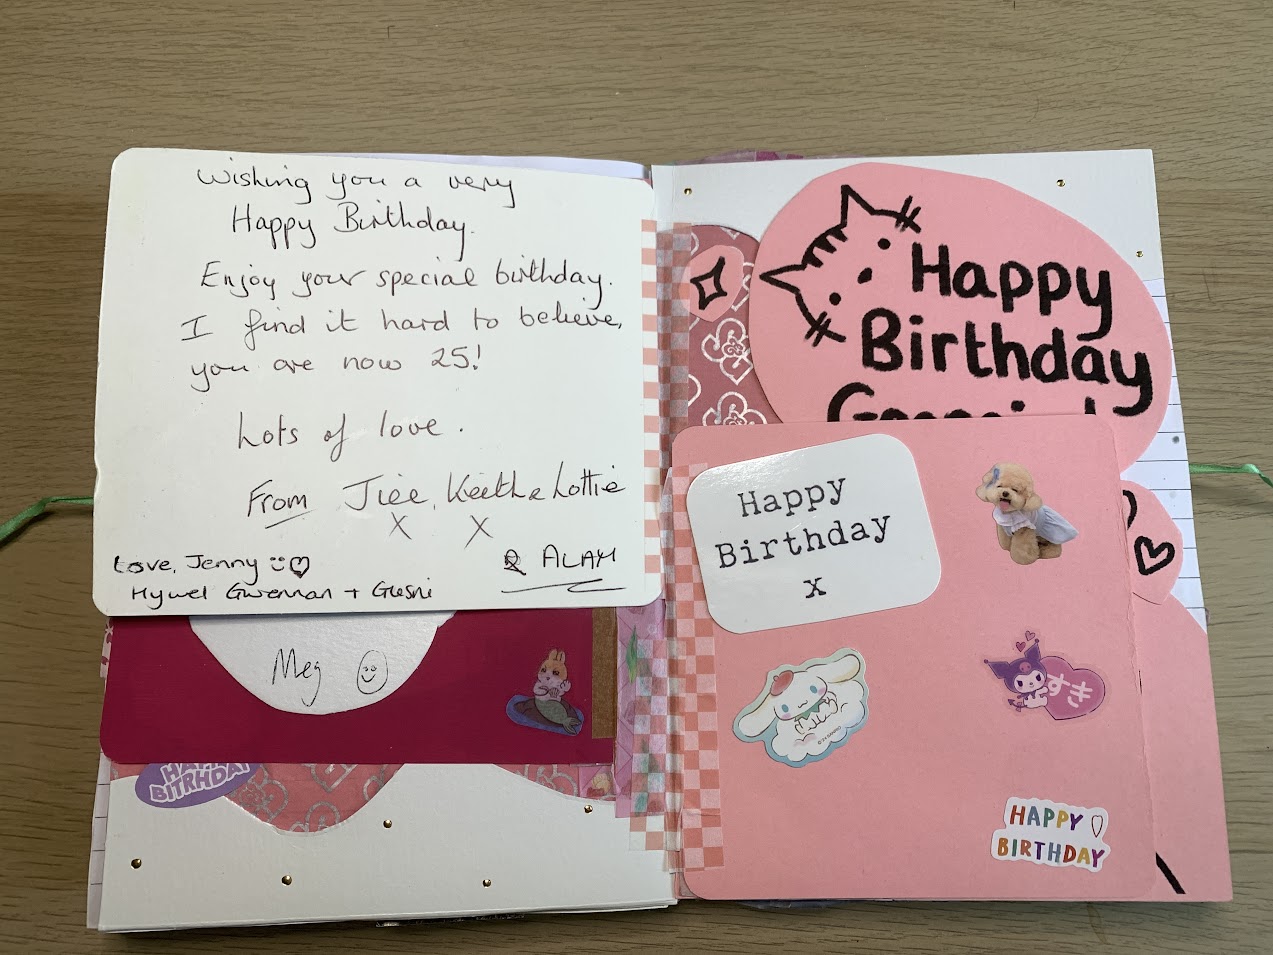 Wishing you a very
Happy Birthday.
Enjoy your special birthday.
I find it hard to believe,
you are now 25!
Lots of love.
From Keith & Lottie
X X
& ALAN
Love, Jenny
Hywel Gwennan +
Meg
HAPPY
BITRHDAY
Happy
Birthday
Happy
Birthday
x
すき
HAPPY
BIRTHDAY